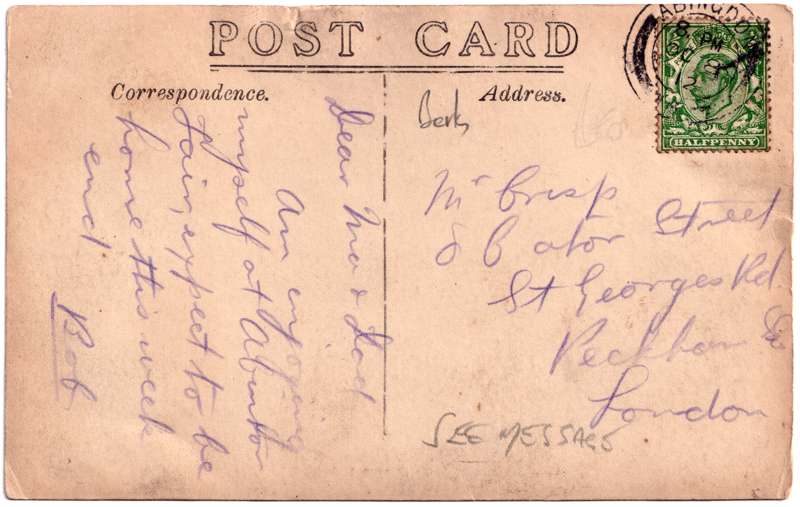 POST CARD
Correspondence.
Dear Ma & Dad
Am enjoying
myself at Abinton
fair, expect to be
home this week
end
Bob
Address.
Berks
Mr Crisp
Street
St Georges Rd
Peckham
London
SEE MESSAGE
ABINGDON
PM
HALFPENNY